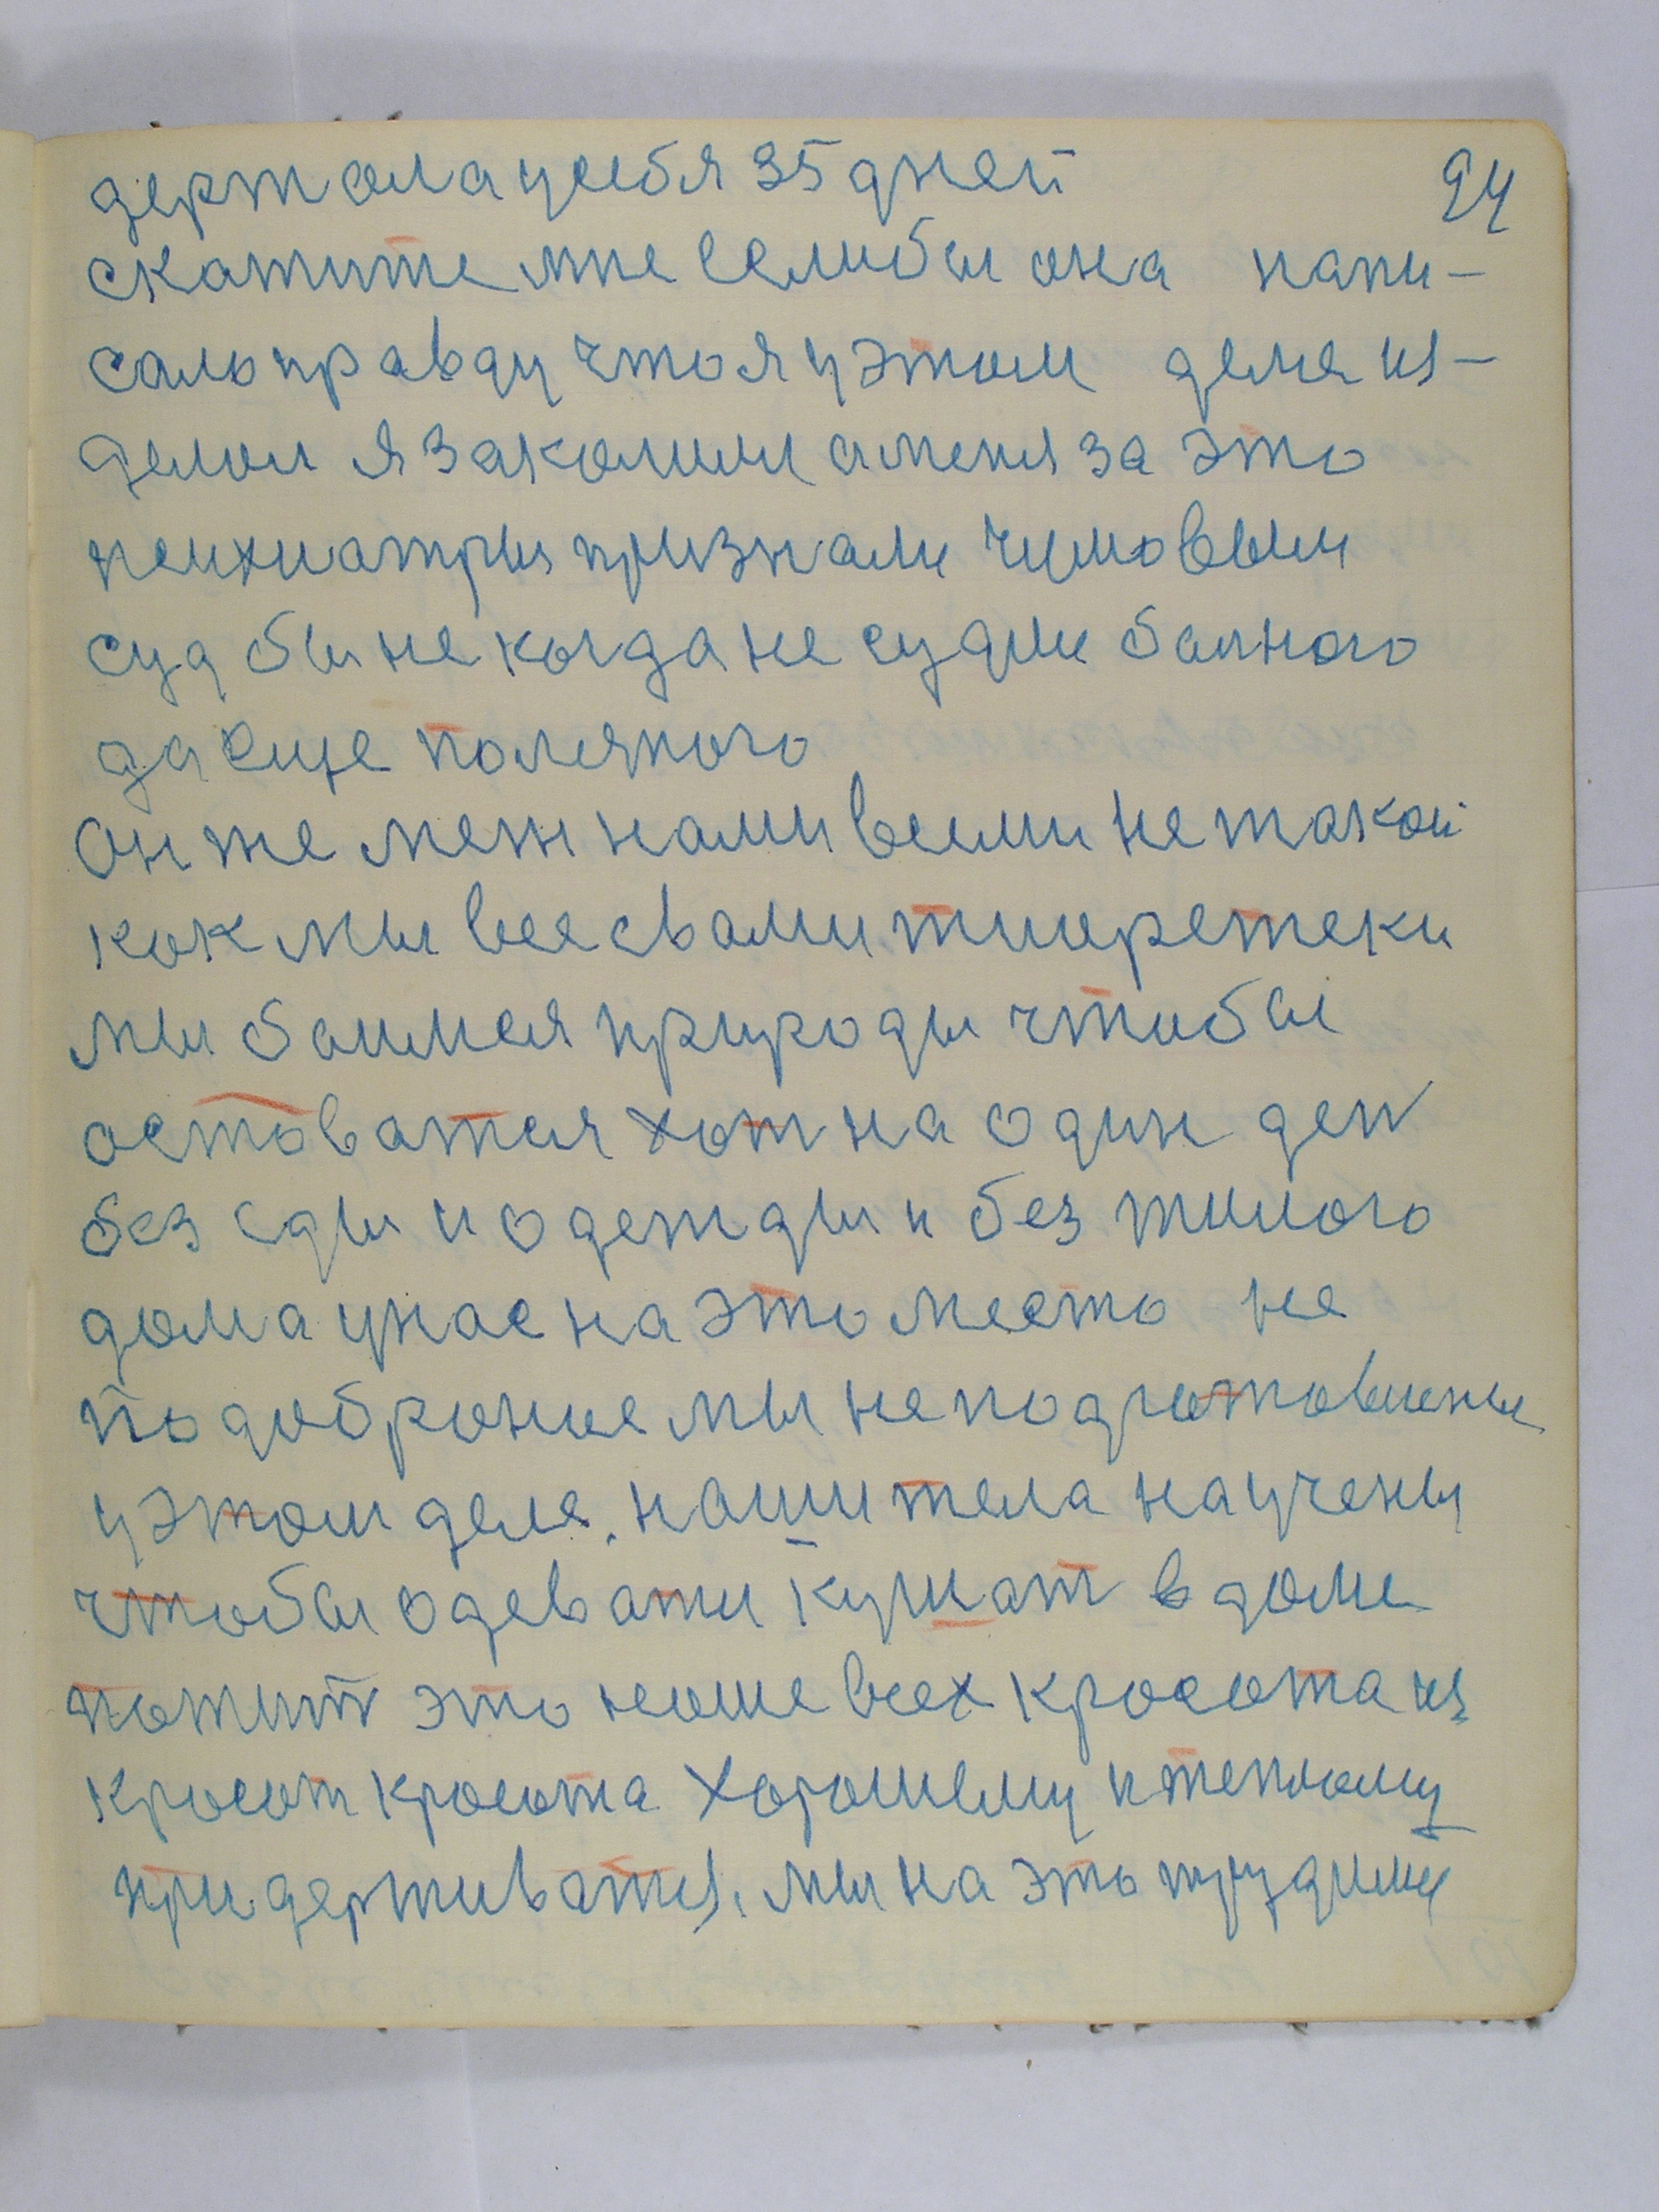 держала усебя 35 дней
94
скажите мне еслибы она напи-
саль правду что я у этом деле из-
делом я законым а меня за это
психиатрия признали чумовым
суд бы не когда не судил болного
да еще полятого
Он же меж нами всеми не такой
как мы все свами тиоретеки
мы боимся природы чтобы
оставатся хот на один ден
без еды и одежды и без жилого
дома унас на это место не
подобрание мы не подготовлены
у этом деле. наши тела научены
чтобы одевати кушат в доме
пожит это наше всех красота из
красот красота хорошему и теплому
придерживатся. мы на это трудимы